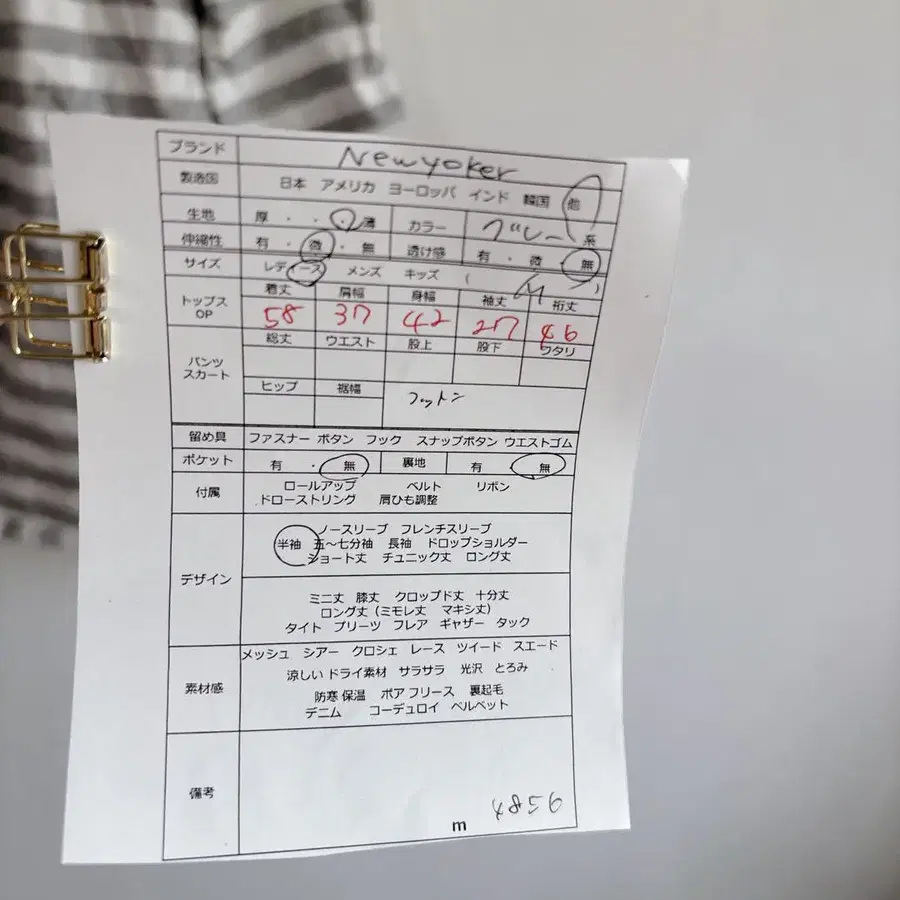 ブランド Newyoker
製造国 日本 アメリカ ヨーロッパ インド 韓国 他
生地 厚・・・薄 カラー グレー 系
伸縮性 有・微・無 透け感 有・微 無
サイズ レディース メンズ キッズ ( M )
トップス OP 着丈 肩幅 身幅 袖丈 裄丈
58 37 42 27 46
パンツ スカート 総丈 ウエスト 股上 股下 ワタリ
ヒップ 裾幅 コットン
留め具 ファスナー ボタン フック スナップボタン ウエストゴム
ポケット 有・無 裏地 有 無
付属 ロールアップ ベルト リボン
ドローストリング 肩ひも調整
デザイン ノースリーブ フレンチスリーブ
半袖 五〜七分袖 長袖 ドロップショルダー
ショート丈 チュニック丈 ロング丈
ミニ丈 膝丈 クロップド丈 十分丈
ロング丈(ミモレ丈 マキシ丈)
タイト プリーツ フレア ギャザー タック
素材感 メッシュ シアー クロシェ レース ツイード スエード
涼しい ドライ素材 サラサラ 光沢 とろみ
防寒 保温 ボア フリース 裏起毛
デニム コーデュロイ ベルベット
備考
m